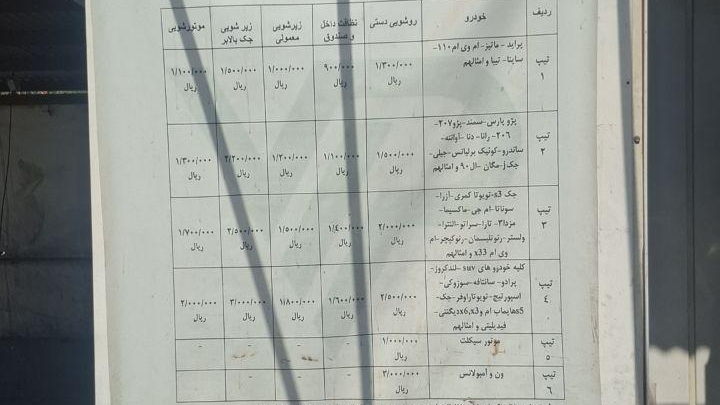 ردیف خودرو روشویی دستی نظافت داخل و صندوق زیرشویی معمولی زیر شویی جک بالابر موتورشویی
تیپ ۱
پراید - ماتیز- ام وی ام۱۱۰-
ساینا- تیبا و امثالهم
۱/۳۰۰/۰۰۰ ریال
۹۰۰/۰۰۰ ریال
۱/۰۰۰/۰۰۰ ریال
۱/۵۰۰/۰۰۰ ریال
۱/۱۰۰/۰۰۰ ریال
تیپ ۲
پژو پارس-سمند-پژو۲۰۷-
۲۰۶- رانا- دنا -آوانته-
ساندرو-کوئیک برلیانس-جیلی-
جکj-مگان -ال۹۰ و امثالهم
۱/۵۰۰/۰۰۰ ریال
۱/۱۰۰/۰۰۰ ریال
۱/۲۰۰/۰۰۰ ریال
۲/۲۰۰/۰۰۰ ریال
۱/۳۰۰/۰۰۰ ریال
تیپ ۳
جک s3-تویوتا کمری-آزرا-
سوناتا-ام جی-ماکسیما-
مزدا۳- تارا-سراتو-النترا-
ولستر-رنوتلیسمان-رنوکپچر-ام
وی ام x33 و امثالهم
۲/۰۰۰/۰۰۰ ریال
۱/۴۰۰/۰۰۰ ریال
۱/۵۰۰/۰۰۰ ریال
۲/۵۰۰/۰۰۰ ریال
۱/۷۰۰/۰۰۰ ریال
تیپ ۴
کلیه خودرو های suv -لندکروز-
پرادو- سانتافه-سوزوکی-
اسپورتیج-تویوتاراوفر-جک-
s5هایماب ام وx6,x3دیگنتی-
فیدیلیتی و امثالهم
۲/۵۰۰/۰۰۰ ریال
۱/۶۰۰/۰۰۰ ریال
۱/۸۰۰/۰۰۰ ریال
۳/۰۰۰/۰۰۰ ریال
۲/۰۰۰/۰۰۰ ریال
تیپ ۵
موتور سیکلت
۱/۰۰۰/۰۰۰ ریال
- - - -
تیپ ۶
ون و آمبولانس
۳/۰۰۰/۰۰۰ ریال
- - - -